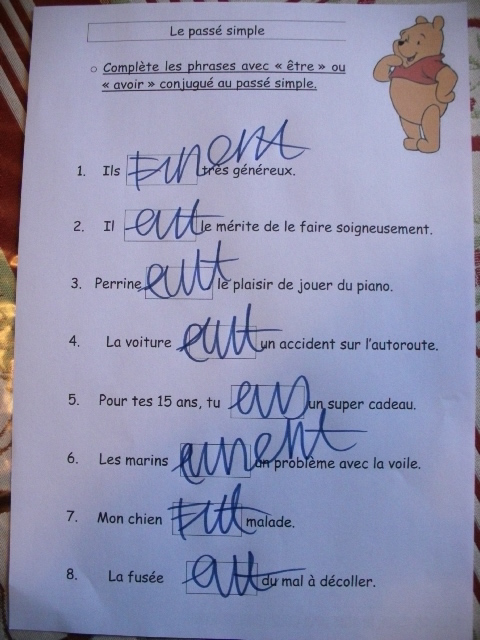 Le passé simple
○ Complète les phrases avec « être » ou
« avoir » conjugué au passé simple.
1. Ils Furent très généreux.
2. Il eut le mérite de le faire soigneusement.
3. Perrine eut le plaisir de jouer du piano.
4. La voiture eut un accident sur l'autoroute.
5. Pour tes 15 ans, tu eus un super cadeau.
6. Les marins eurent un problème avec la voile.
7. Mon chien Fut malade.
8. La fusée eut du mal à décoller.